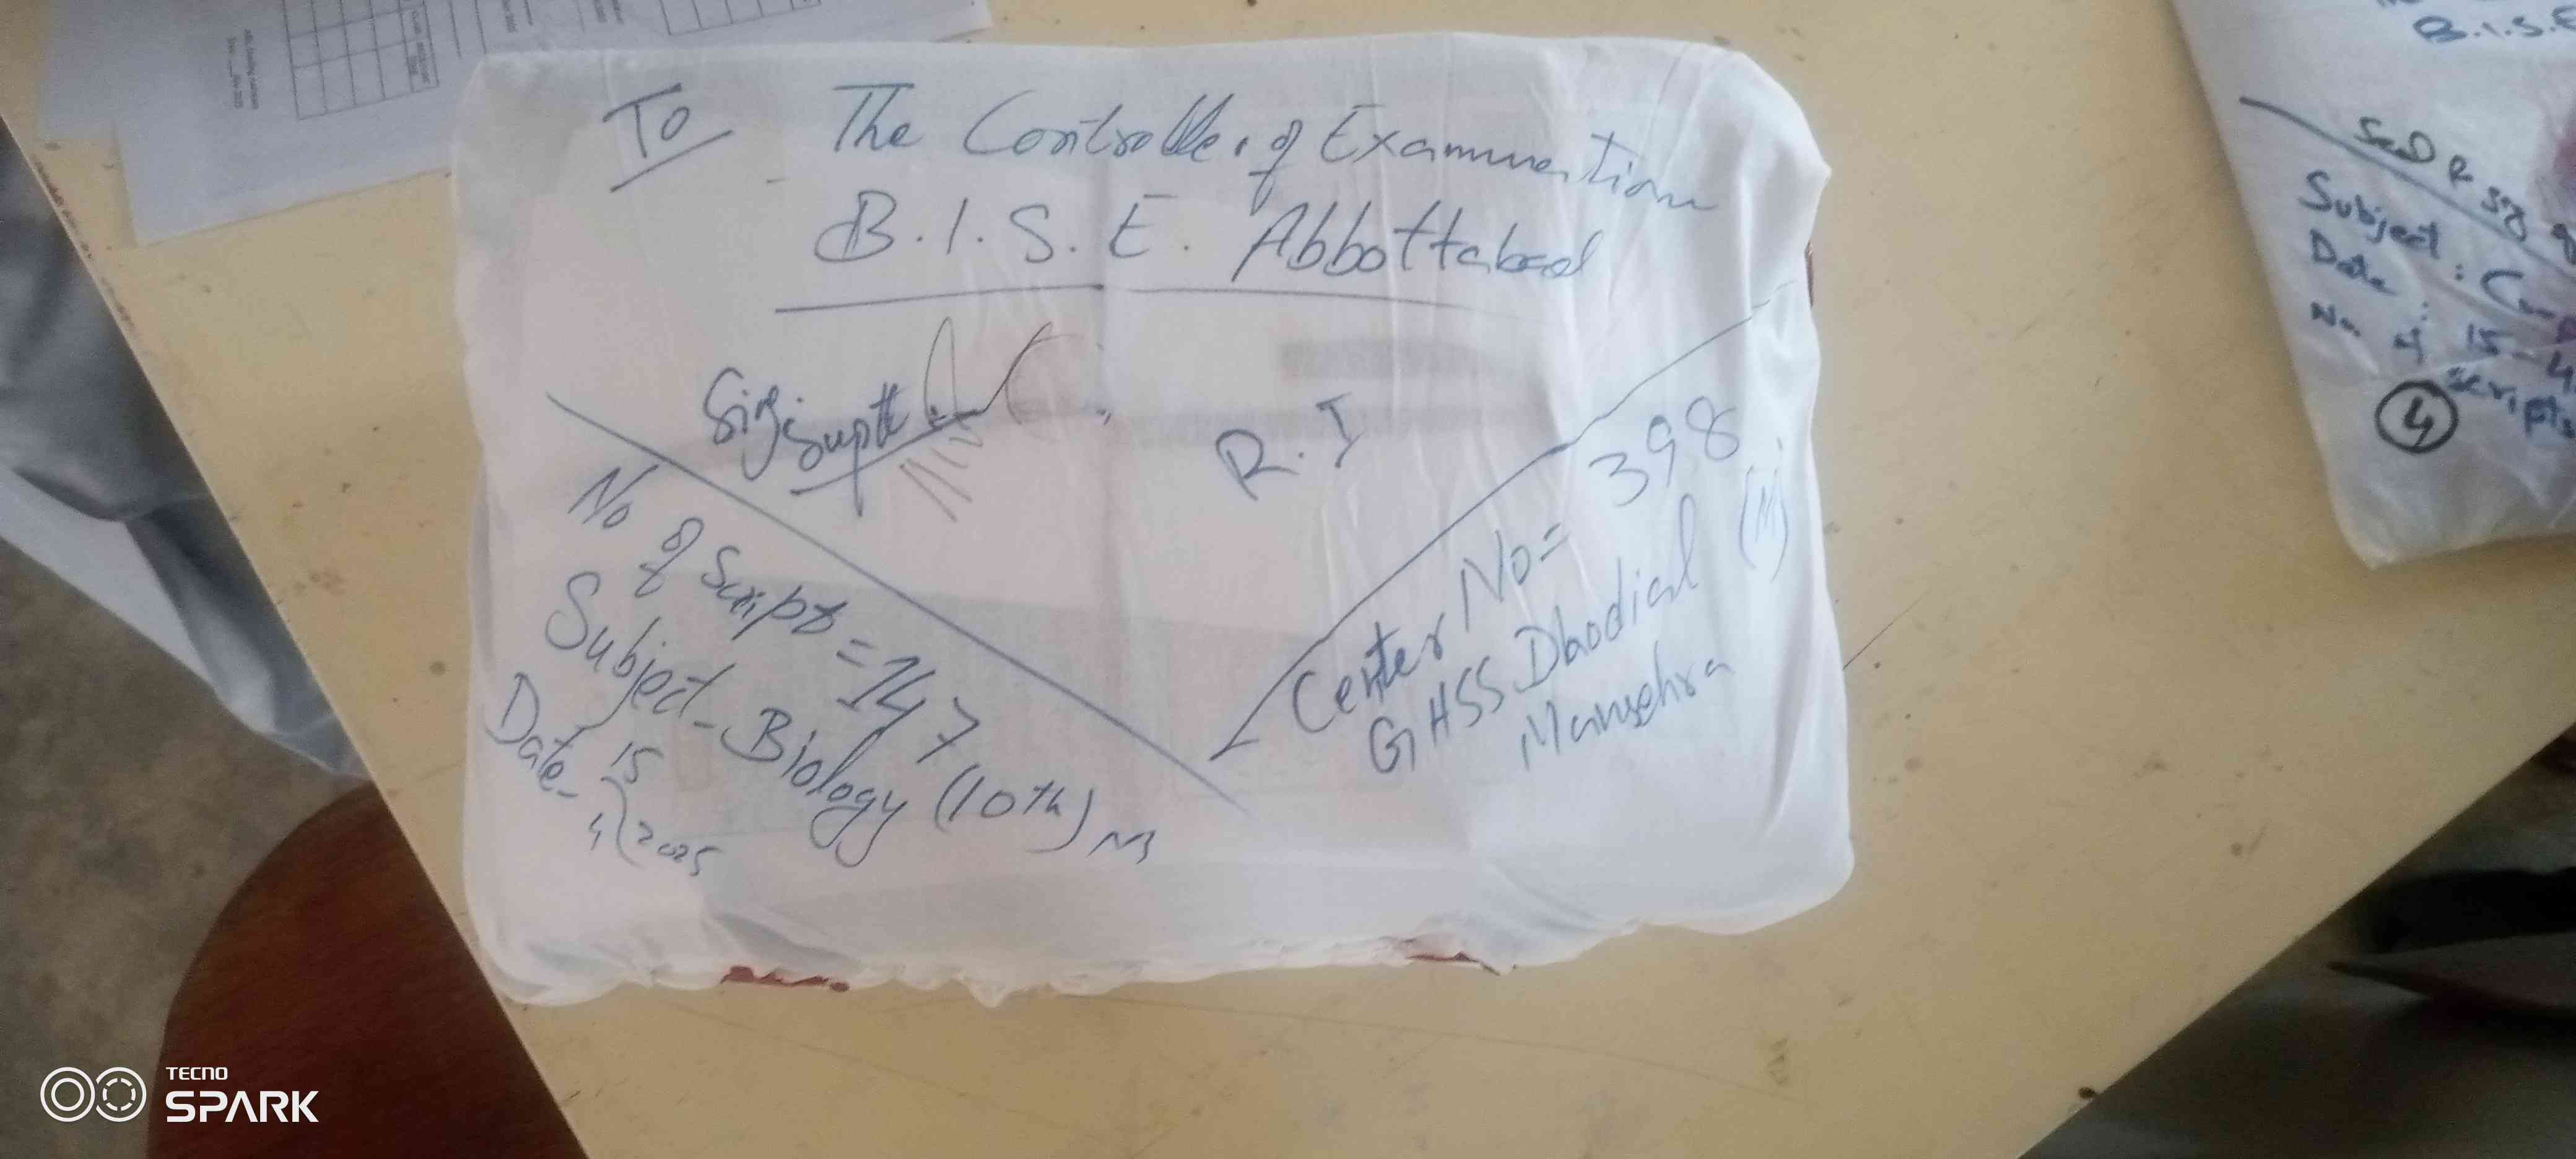 To The Controller of Examination
B.I.S.E. Abbottabad
Sig. Suptt
R.I
No of Script = 147
Subject - Biology (10th) M
Date - 15/4/2025
Center No = 398
GHSS Dhodial (M)
Mansehra
B.I.S.E
Seal & Sig of
Subject :
Date : 15-4
No of scripts
4
TECNO
SPARK